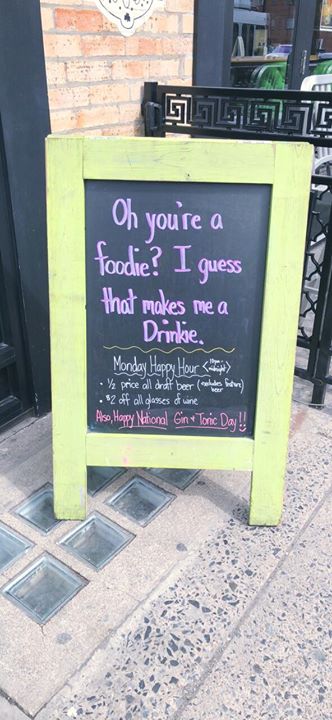 Oh you're a
foodie? I guess
that makes me a
Drinkie.
Monday Happy Hour <10pm - midnight>
• ½ price all draft beer (excludes feature beer)
• $2 off all glasses of wine
Also, Happy National Gin & Tonic Day!!